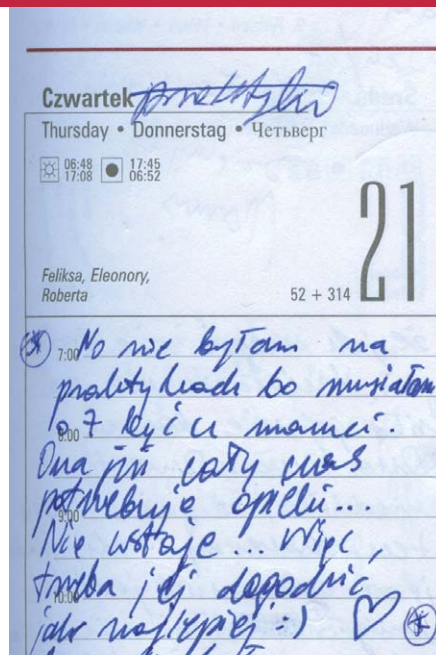 Czwartek praktyki
Thursday • Donnerstag • Четьверг
06:48 17:45
17:08 06:52
21
Feliksa, Eleonory,
Roberta 52 + 314
7:00 No nie byłam na
praktykach bo musiałam
8:00 o 7 być u mamci.
Ona już cały czas
9:00 potrzebuje opieki...
Nie wstaje... Więc,
10:00 trzeba jej dogodzić
jak najlepiej :) ♡